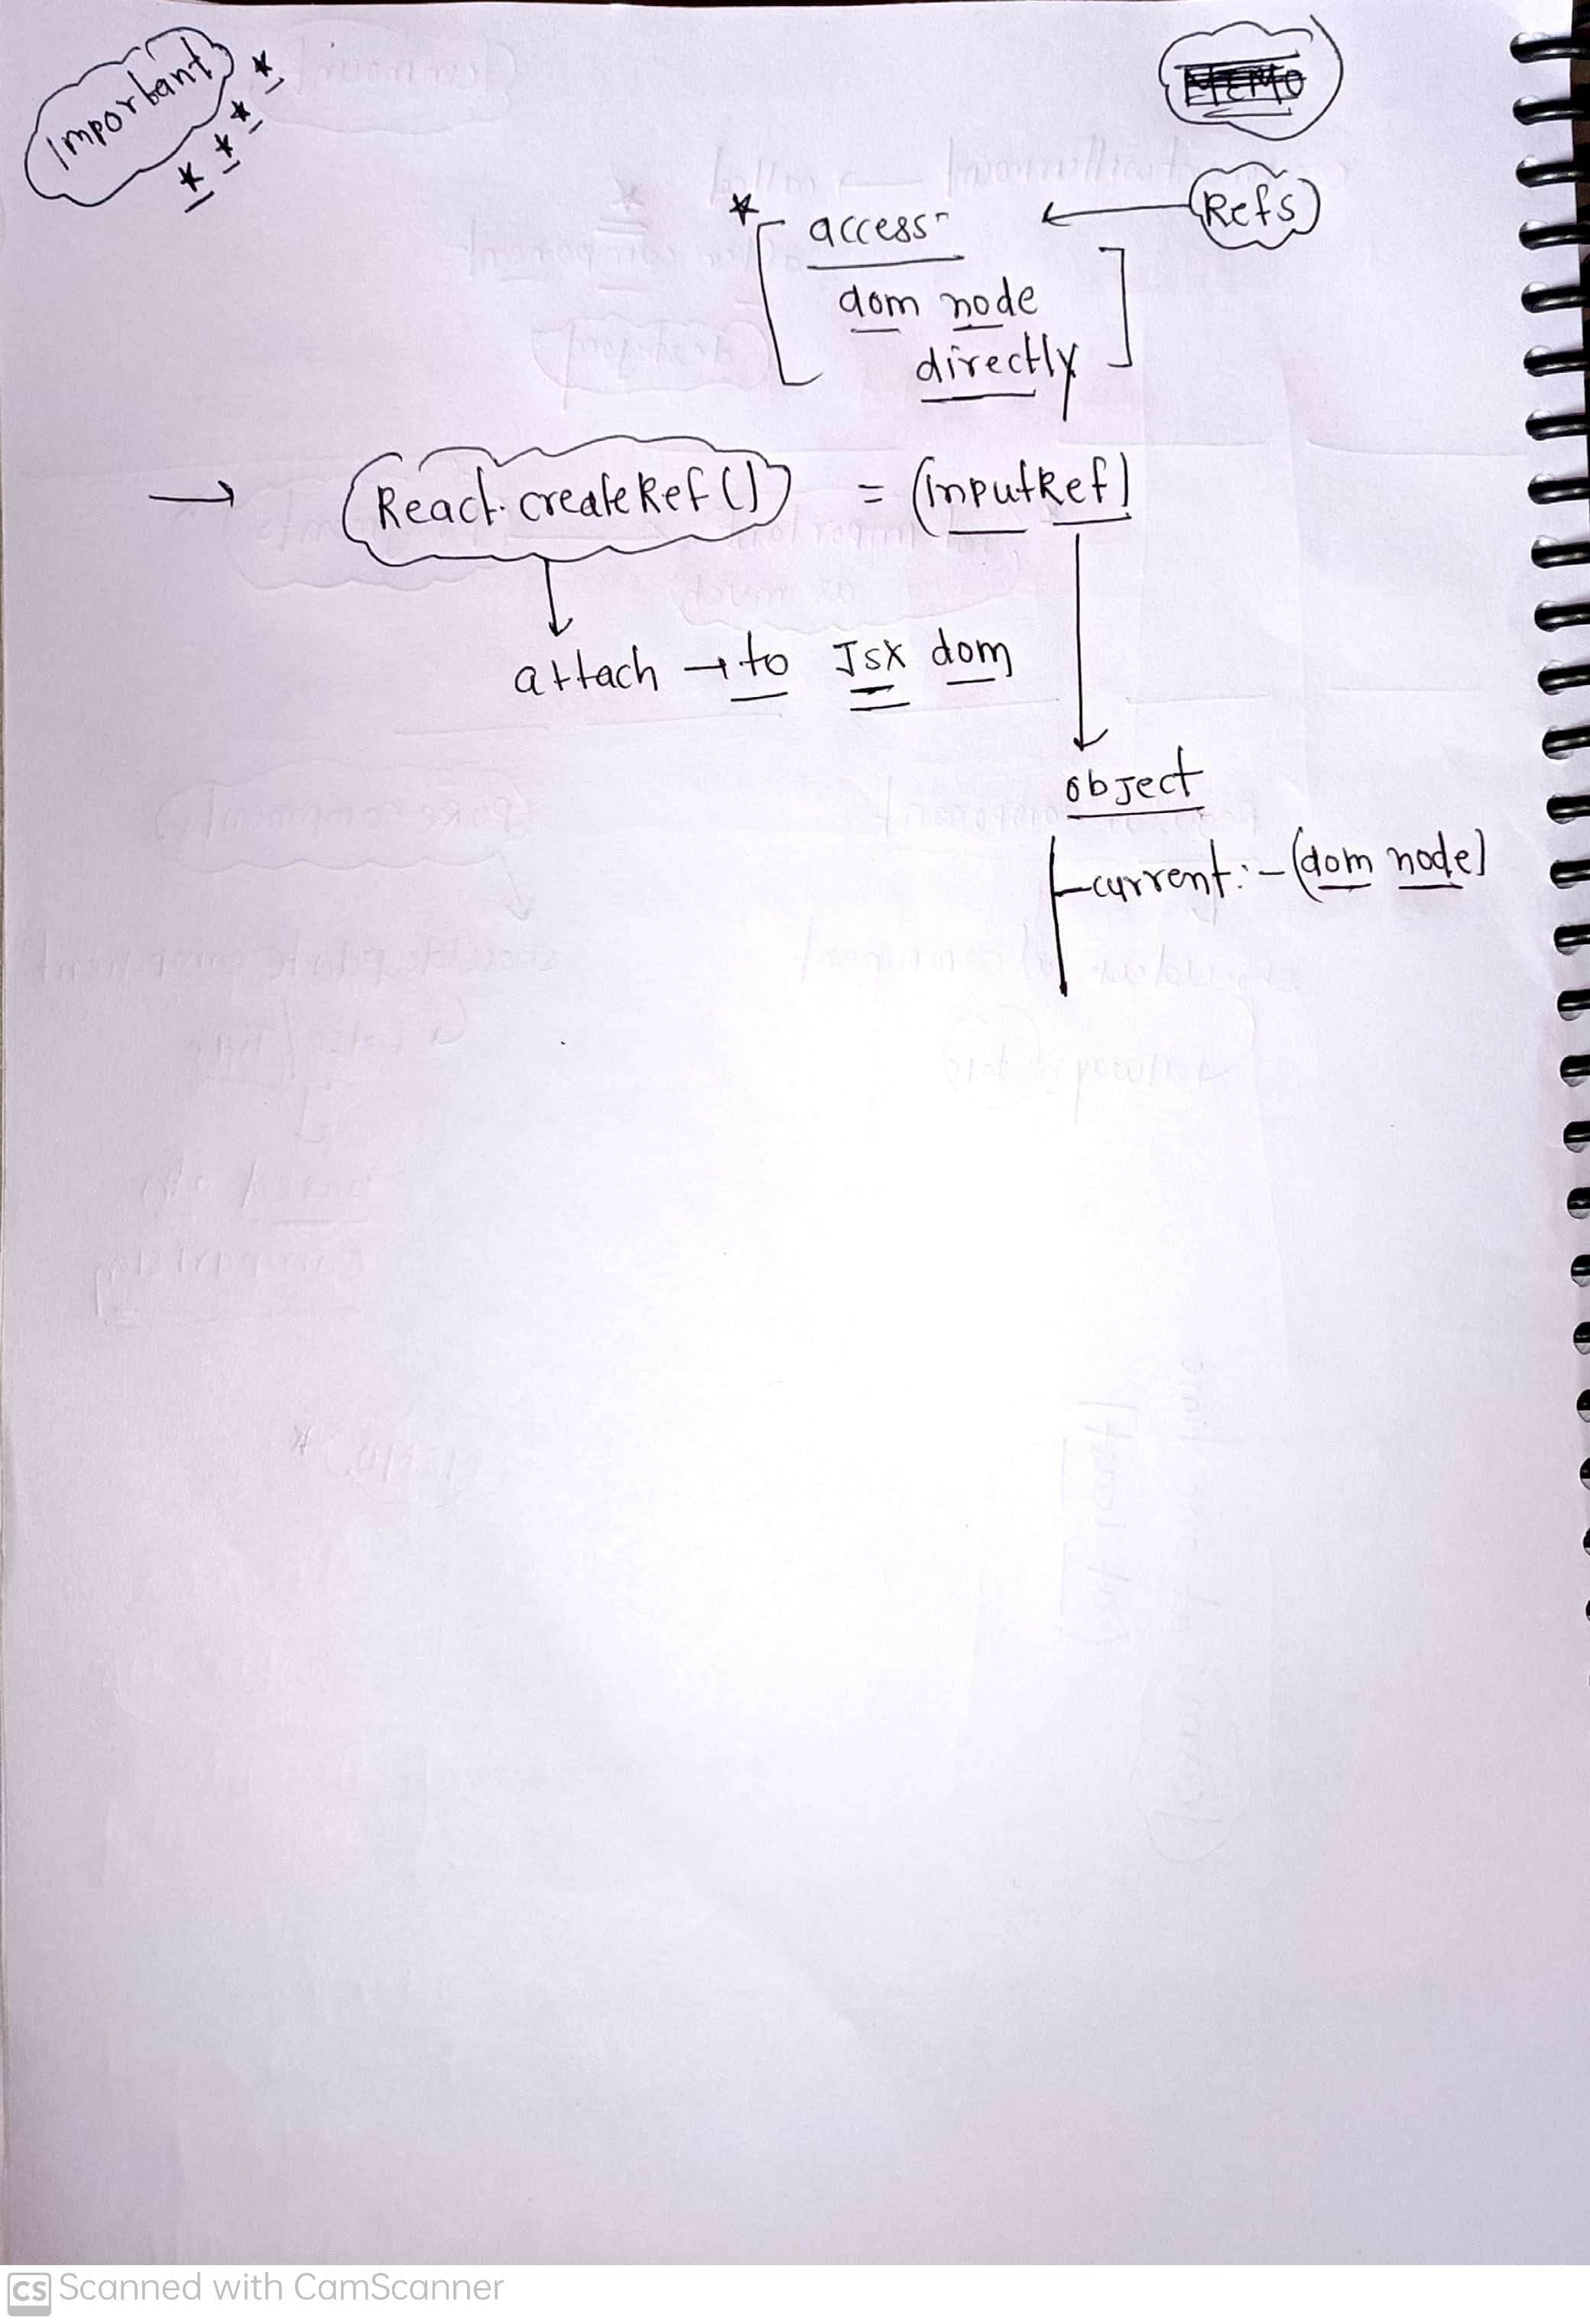 Important
* * * *
MEMO
Refs
* access
dom node
directly
→ React.createRef() = (InputRef)
attach → to JSX dom
object
current :- (dom node)
CS Scanned with CamScanner